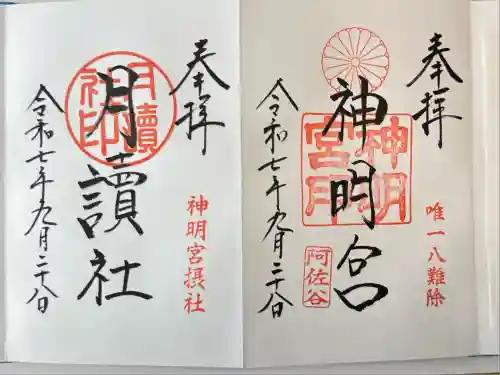 奉拝
唯一八難除
神明宮
神明
宮印
阿佐谷
令和七年九月二十八日
奉拝
神明宮摂社
月讀社
月讀
社印
令和七年九月二十八日